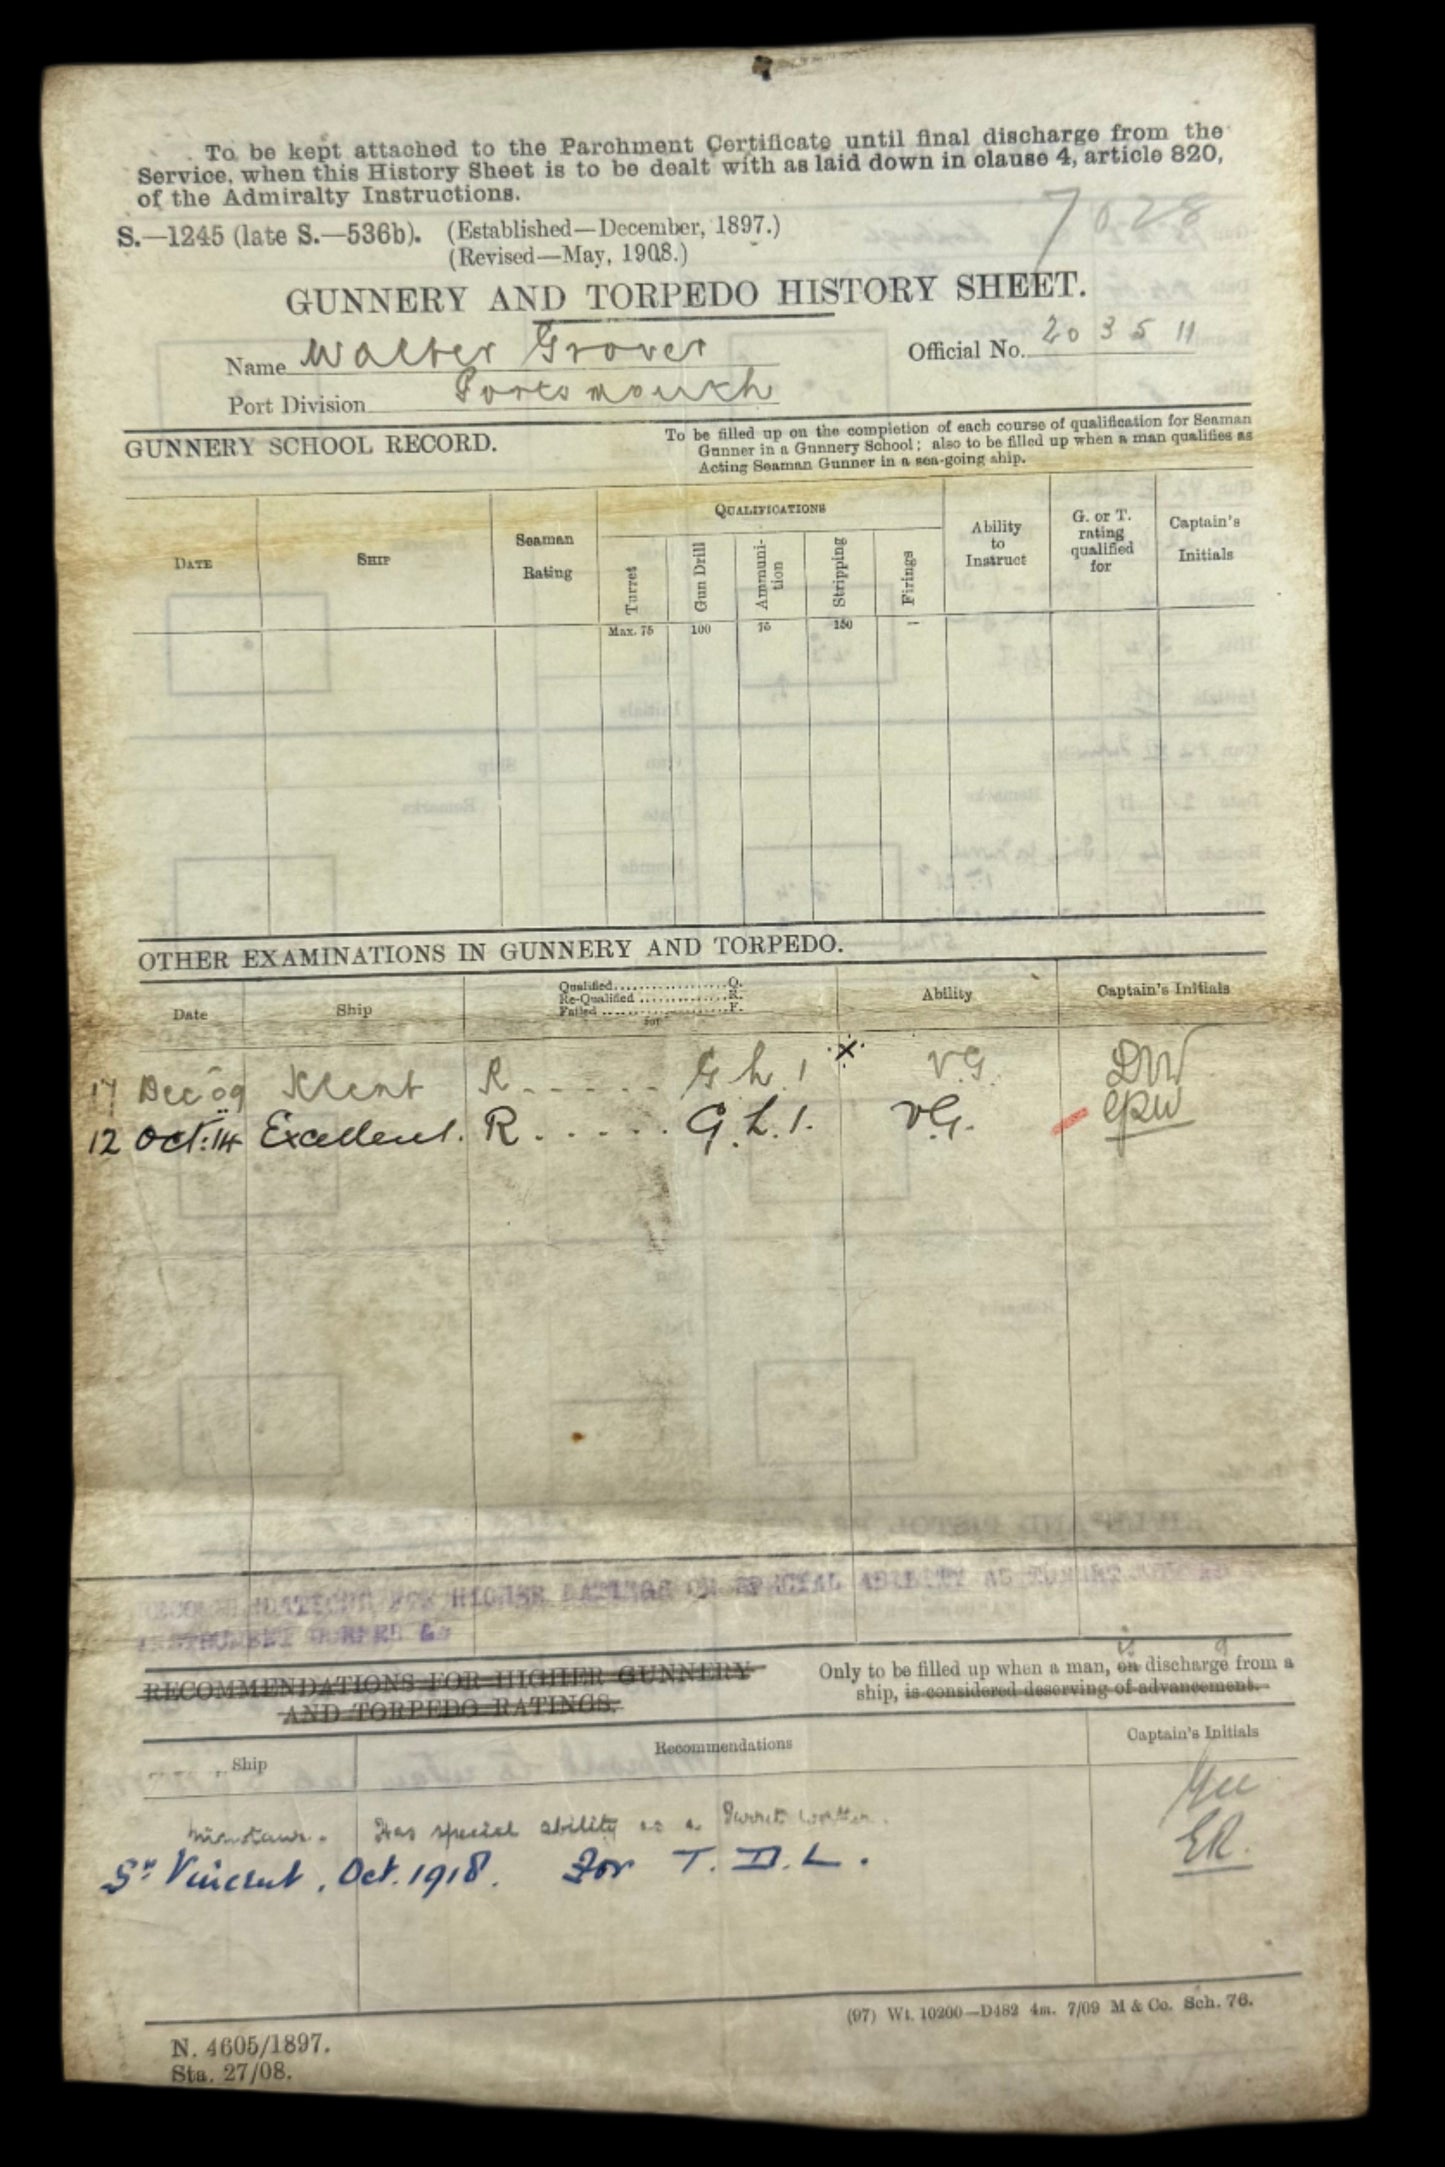 To be kept attached to the Parchment Certificate until final discharge from the
Service, when this History Sheet is to be dealt with as laid down in clause 4, article 820,
of the Admiralty Instructions.
7028
S.—1245 (late S.—536b). (Established—December, 1897.)
(Revised—May, 1908.)
GUNNERY AND TORPEDO HISTORY SHEET.
Name Walter Grover Official No. 203511
Port Division Portsmouth
GUNNERY SCHOOL RECORD.
To be filled up on the completion of each course of qualification for Seaman
Gunner in a Gunnery School; also to be filled up when a man qualifies as
Acting Seaman Gunner in a sea-going ship.
DATE SHIP Seaman Rating QUALIFICATIONS Ability to Instruct G. or T. rating qualified for Captain's Initials
Turret Gun Drill Ammuni-tion Stripping Firings
Max. 75 100 75 150 —
OTHER EXAMINATIONS IN GUNNERY AND TORPEDO.
Date Ship Qualified....Q. Re-Qualified....R. Failed....F. for Ability Captain's Initials
17 Dec 09 Kent R - - - - - G L 1 x V.G. DW
12 Oct: 14 Excellent. R . . . . . G. L. 1. V.G.
RECOMMENDATIONS FOR HIGHER RATINGS OR SPECIAL ABILITY AS TURRET
INSTRUMENT WORKER &c
RECOMMENDATIONS FOR HIGHER GUNNERY
AND TORPEDO RATINGS.
Only to be filled up when a man, on is discharge from a
ship, is considered deserving of advancement.
Ship Recommendations Captain's Initials
Minotaur. Has special ability as a Turret worker.
St Vincent, Oct. 1918. For T. D. L. ER.
(97) Wt. 10200—D482 4m. 7/09 M & Co. Sch. 76.
N. 4605/1897.
Sta. 27/08.